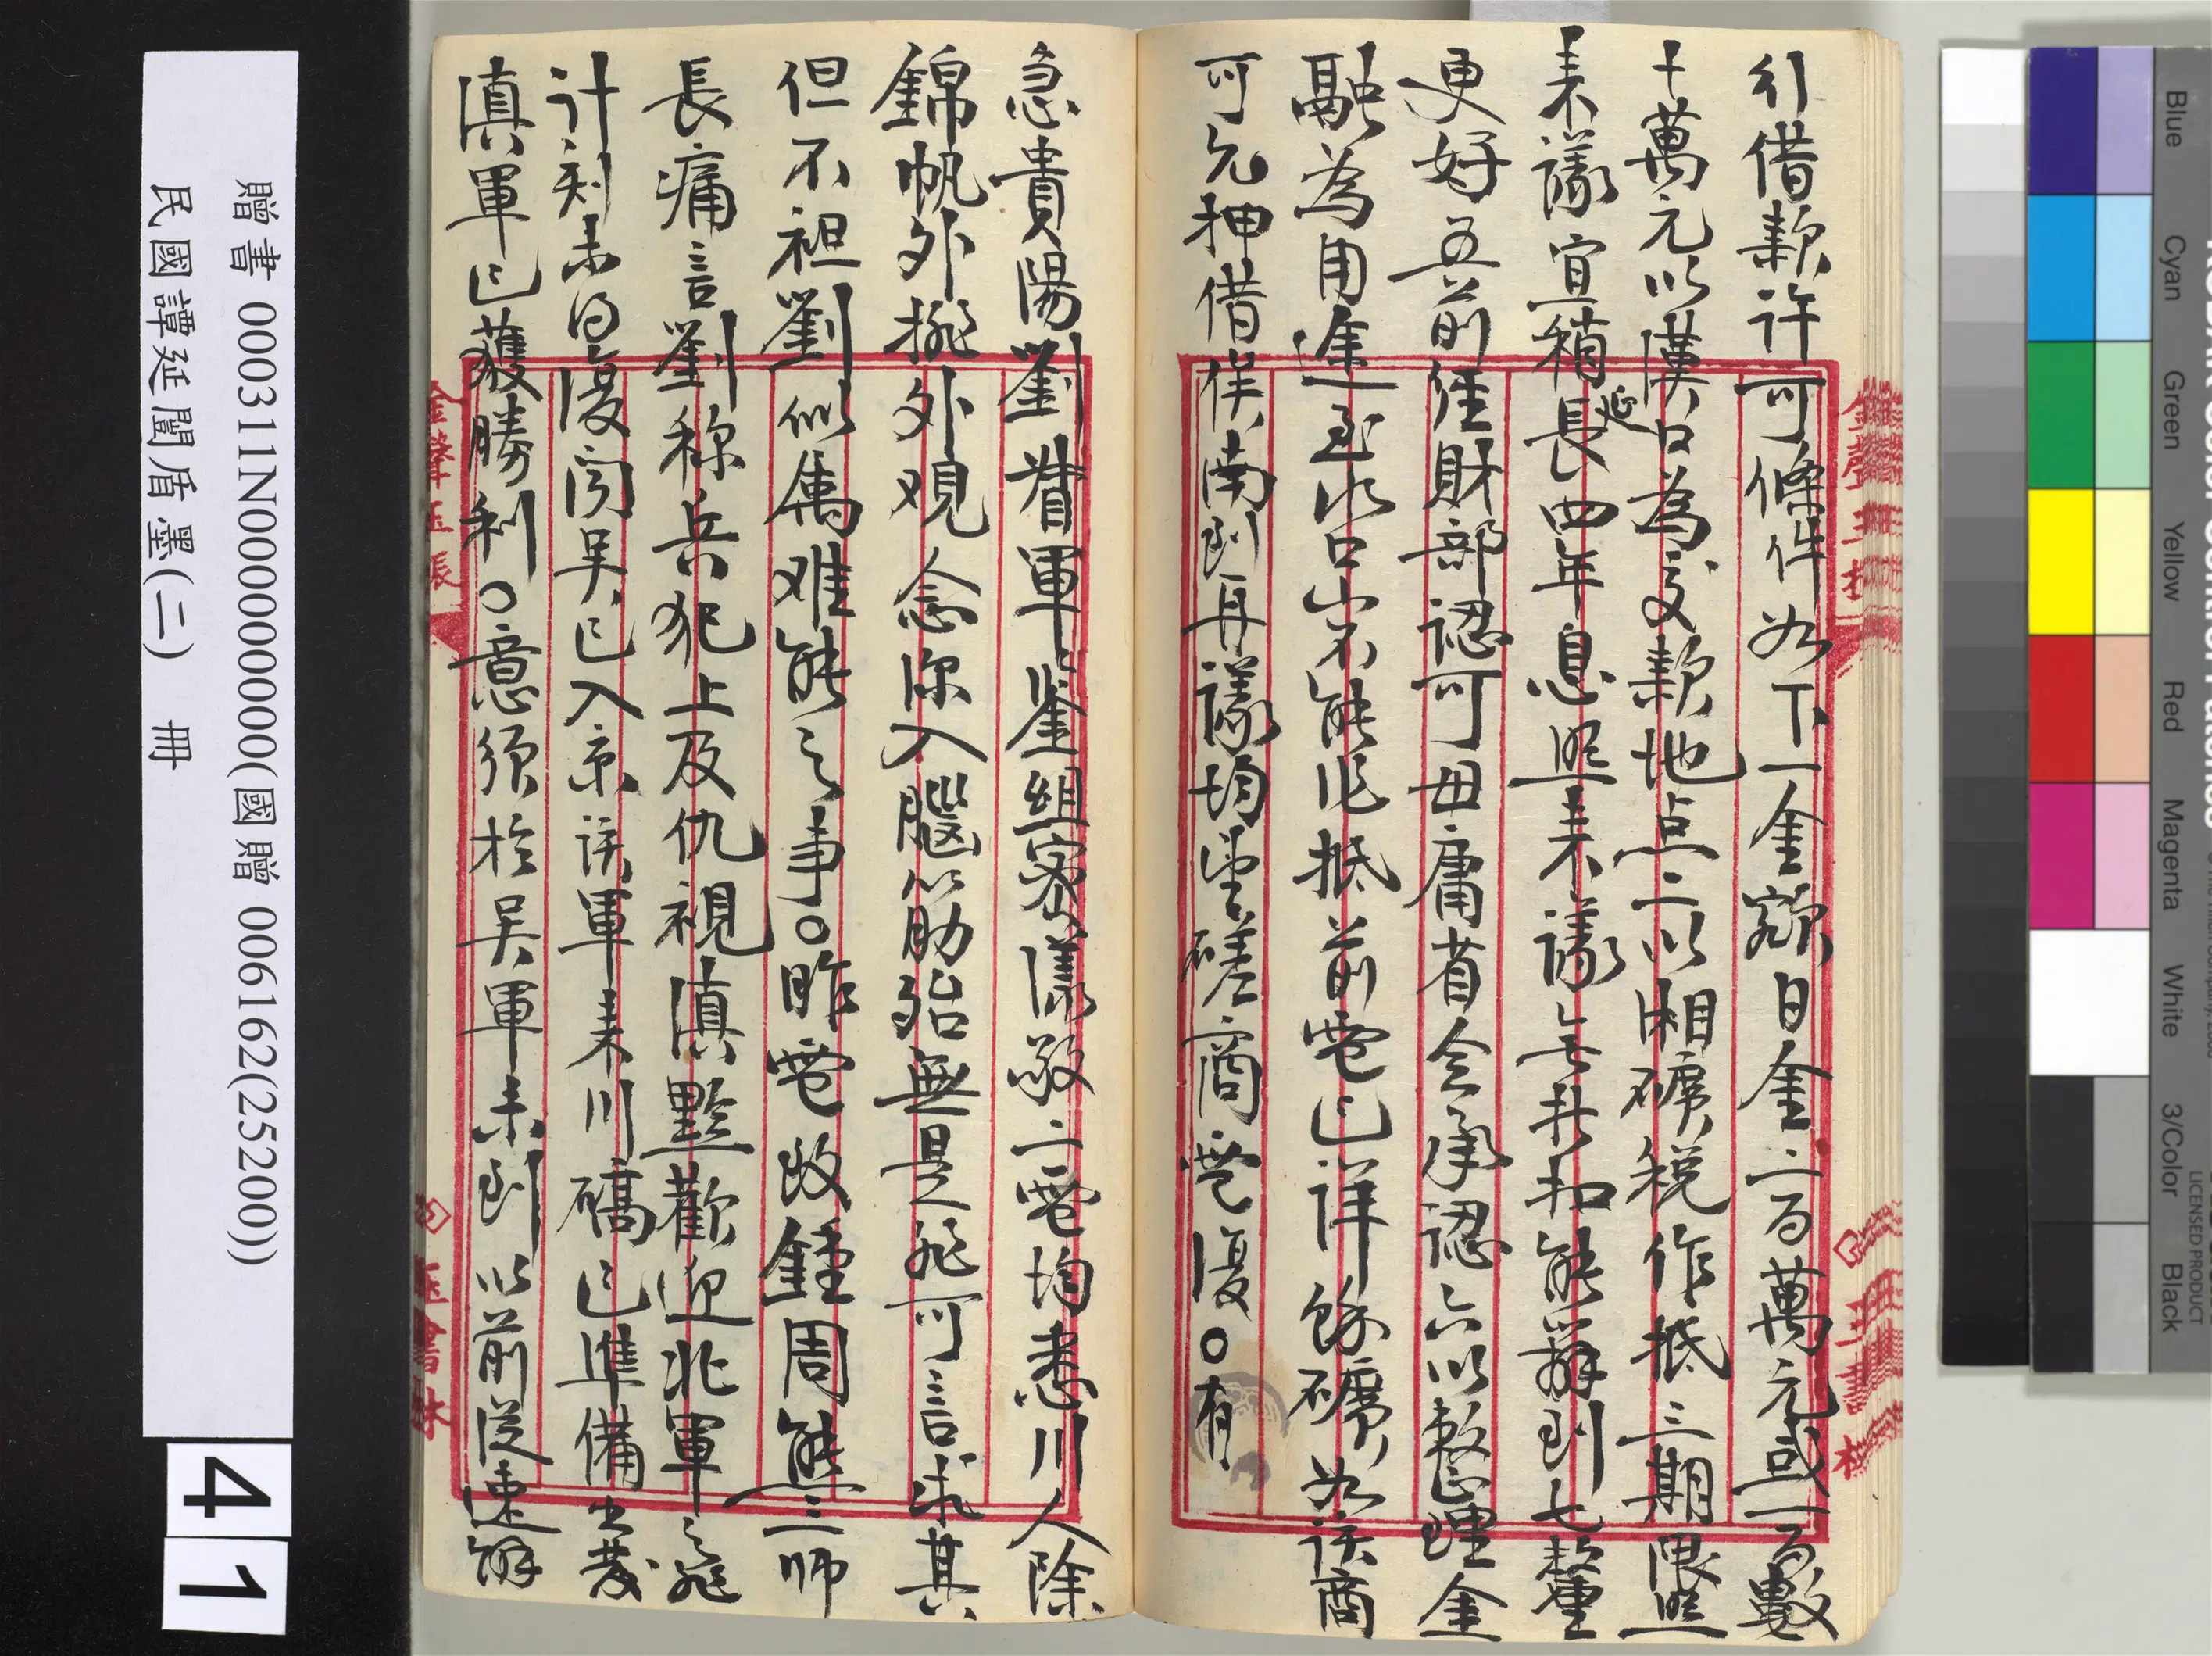 引借款許可條件如下一金額日金二百萬元或一百數
十萬元以漢口為交款地点二以湘礦稅作抵三期限照
来議宜稍延長四年息照来議無扣能辦到七釐
更好五前經財部認可毋庸省令承認六以整理金
融為用途至水口山不能作抵前電已詳餘礦如該商
可允押借俟南到再議均望磋商電復○有
急貴陽劉督軍鑒組密漾敬二電均悉川人除
錦帆外擬外觀念深入腦筋殆無是非可言求其
但不袒劉似屬难能之事○昨電政鍾周熊三師
長痛言劉稱兵犯上及仇視滇黔歡迎北軍之非
計刻未得復聞吴已入京該軍来川確已準備出發
滇軍已獲勝利○意須於吴軍未到以前從速解
贈書 000311N000000000000(國贈 006162(25200))
民國譚延闓盾墨(二) 冊
41
Blue
Cyan
Green
Yellow
Red
Magenta
White
3/Color
Black
LICENSED PRODUCT